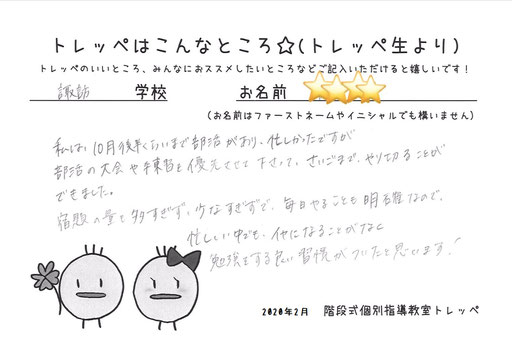 トレッペはこんなところ☆(トレッペ生より)
トレッペのいいところ、みんなにおススメしたいところなどご記入いただけると嬉しいです!
諏訪 学校 お名前
(お名前はファーストネームやイニシャルでも構いません)
私は、10月後半くらいまで部活があり、忙しかったですが
部活の大会や練習を優先させて下さって、さいごまで、やり切ることが
できました。
宿題の量も多すぎず、少なすぎずで、毎日やることも明確なので、
忙しい中でも、イヤになることがなく
勉強をする良い習慣がついたと思います!
2020年2月 階段式個別指導教室トレッペ